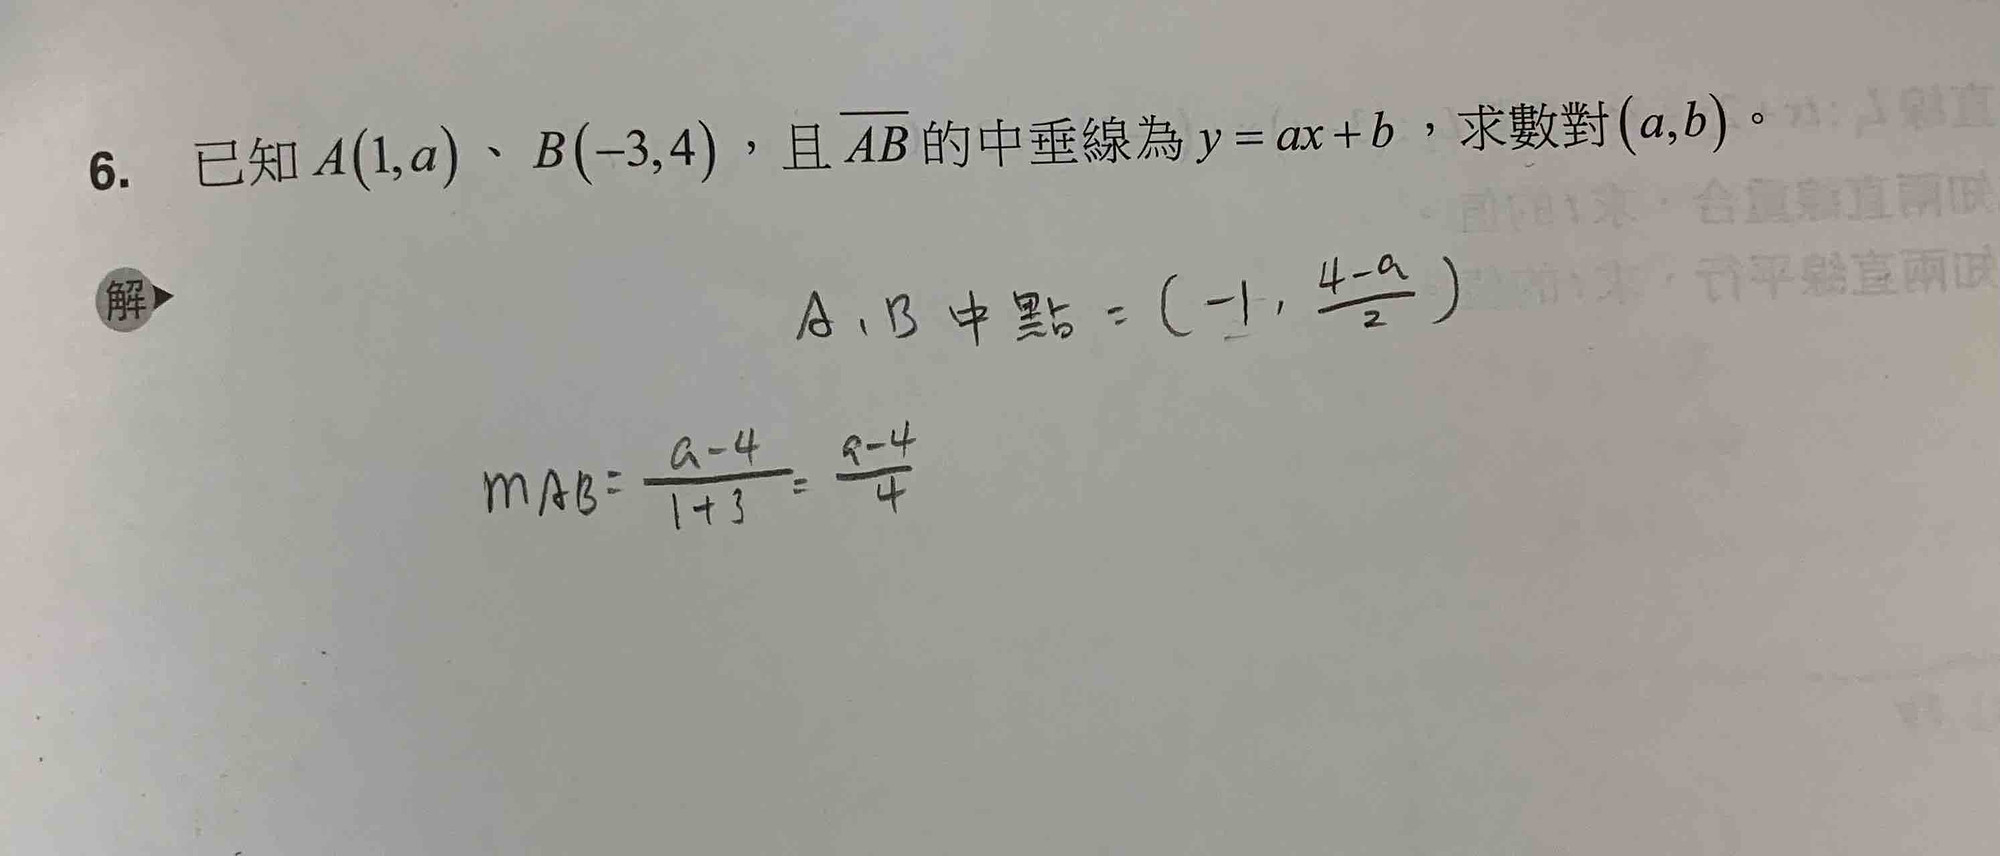 6. 已知 A(1,a)、B(−3,4)，且 AB 的中垂線為 y = ax + b，求數對 (a,b)。
解
A、B 中點 = (-1, (4-a)/2)
mAB = (a-4)/(1+3) = (a-4)/4